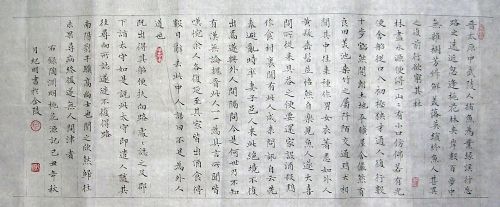 晉太原中武陵人捕魚為業緣溪行忘
路之遠近忽逢桃花林夾岸數百步中
無雜樹芳草鮮美落英繽紛漁人甚異
之復前行欲窮其林
林盡水源便得一山山有小口彷彿若有光
便舍船從口入初極狹才通人復行數
十步豁然開朗土地平曠屋舍儼然有
良田美池桑竹之屬阡陌交通雞犬相
聞其中往來種作男女衣著悉如外人
黃髮垂髫並怡然自樂見漁人乃大驚
問所從來具答之便要還家設酒殺雞
作食村中聞有此人咸來問訊自云先世
避秦時亂率妻子邑人來此絕境不復
出焉遂與外人間隔問今是何世乃不知
有漢無論魏晉此人一一為具言所聞皆
嘆惋餘人各復延至其家皆出酒食停
數日辭去此中人語云不足為外人
道也
既出得其船便扶向路處處誌之及郡
下詣太守說如此太守即遣人隨其
往尋向所誌遂迷不復得路
南陽劉子驥高尚士也聞之欣然規往
未果尋病終後遂無問津者
右錄陶淵明桃花源記己丑年秋
月紀明書於金陵